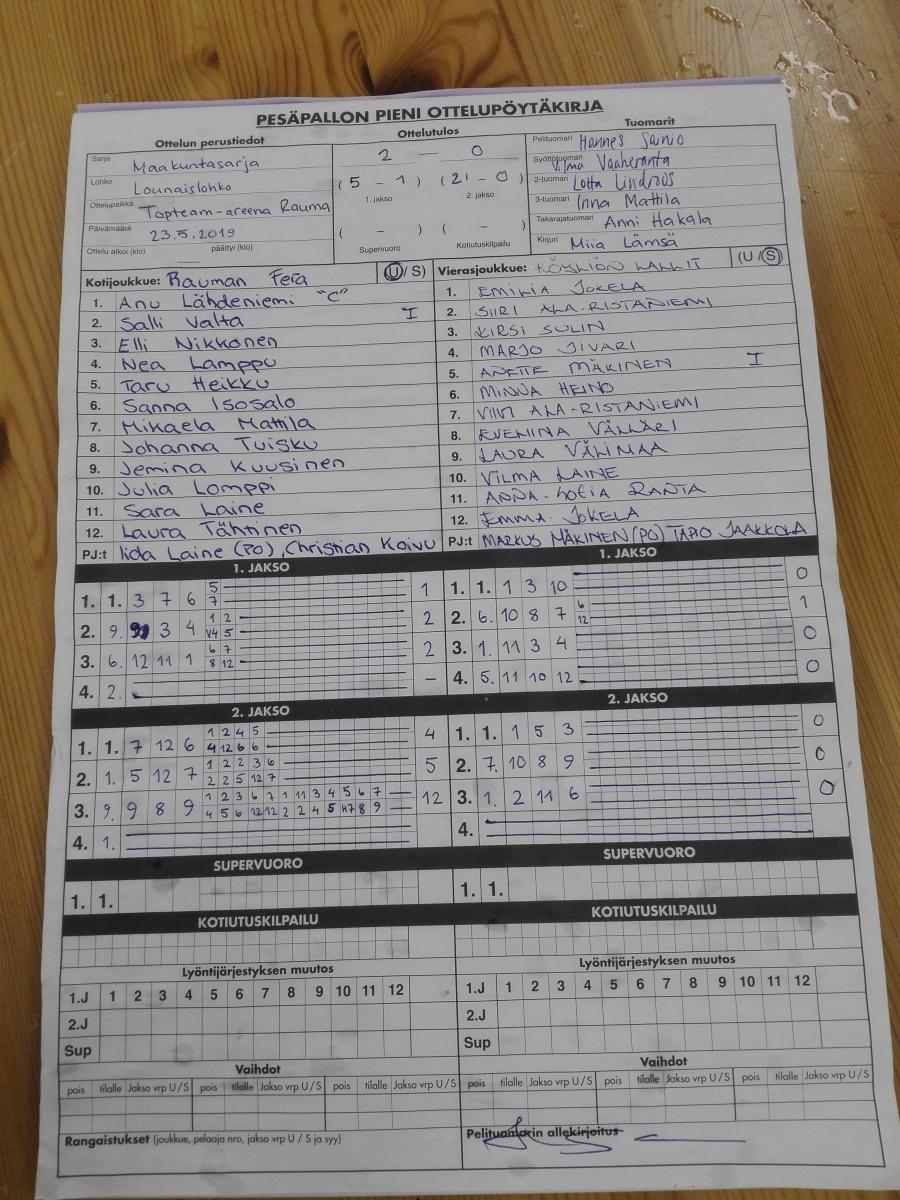 PESÄPALLON PIENI OTTELUPÖYTÄKIRJA
Ottelun perustiedot
Sarja Maakuntasarja
Lohko Lounaislohko
Ottelupaikka Topteam-areena Rauma
Päivämäärä 23.5.2019
Ottelu alkoi (klo) — päättyi (klo)
Ottelutulos
2 — 0
(5 - 1) (21 - 0)
1. jakso 2. jakso
( - ) ( - )
Supervuoro Kotiutuskilpailu
Tuomarit
Pelituomari Hannes Sainio
Syöttötuomari Vilma Vaaheranta
2-tuomari Lotta Lindroos
3-tuomari Inna Mattila
Takarajatuomari Anni Hakala
Kirjuri Miia Lämsä
Kotijoukkue: Rauman Fera (U/S)
1. Anu Lähdeniemi "C"
2. Salli Valta I
3. Elli Nikkonen
4. Nea Lamppu
5. Taru Heikku
6. Sanna Isosalo
7. Mikaela Mattila
8. Johanna Tuisku
9. Jemina Kuusinen
10. Julia Lomppi
11. Sara Laine
12. Laura Tähtinen
PJ:t Iida Laine (PO), Christian Koivu
Vierasjoukkue: KÖYLIÖN LALLIT (U/S)
1. EMILIA JOKELA
2. SIIRI ALA-RISTANIEMI
3. KIRSI SULIN
4. MARJO JIVARI
5. ANETTE MÄKINEN I
6. MINNA HEINO
7. VIIVI ALA-RISTANIEMI
8. EVELIINA VÄLLÄRI
9. LAURA VÄLIMAA
10. VILMA LAINE
11. ANNA-SOFIA RANTA
12. EMMA JOKELA
PJ:t MARKUS MÄKINEN (PO) TAPIO JAAKKOLA
1. JAKSO
1. 1. 3 7 6 5 1
7
2. 9. 3 4 1 2 2
V4 5
3. 6. 12 11 1 6 7 2
8 12
4. 2. –
1. JAKSO
1. 1. 1 3 10 0
2. 6. 10 8 7 6 1
12
3. 1. 11 3 4 0
4. 5. 11 10 12 0
2. JAKSO
1. 1. 7 12 6 1 2 4 5 4
4 12 6 6
2. 1. 5 12 7 1 2 2 3 6 5
2 2 5 12 7
3. 9. 9 8 9 1 2 3 6 7 1 11 3 4 5 6 7 12
4 5 6 12 12 2 2 4 5 7 8 9
4. 1.
2. JAKSO
1. 1. 1 5 3 0
2. 7. 10 8 9 0
3. 1. 2 11 6 0
4.
SUPERVUORO
1. 1.
SUPERVUORO
1. 1.
KOTIUTUSKILPAILU
KOTIUTUSKILPAILU
Lyöntijärjestyksen muutos
1.J 1 2 3 4 5 6 7 8 9 10 11 12
2.J
Sup
Lyöntijärjestyksen muutos
1.J 1 2 3 4 5 6 7 8 9 10 11 12
2.J
Sup
Vaihdot
pois tilalle Jakso vrp U/S pois tilalle Jakso vrp U/S pois tilalle Jakso vrp U/S
Vaihdot
pois tilalle Jakso vrp U/S pois tilalle Jakso vrp U/S pois tilalle Jakso vrp U/S
Rangaistukset (joukkue, pelaaja nro, jakso vrp U / S ja syy)
Pelituomarin allekirjoitus